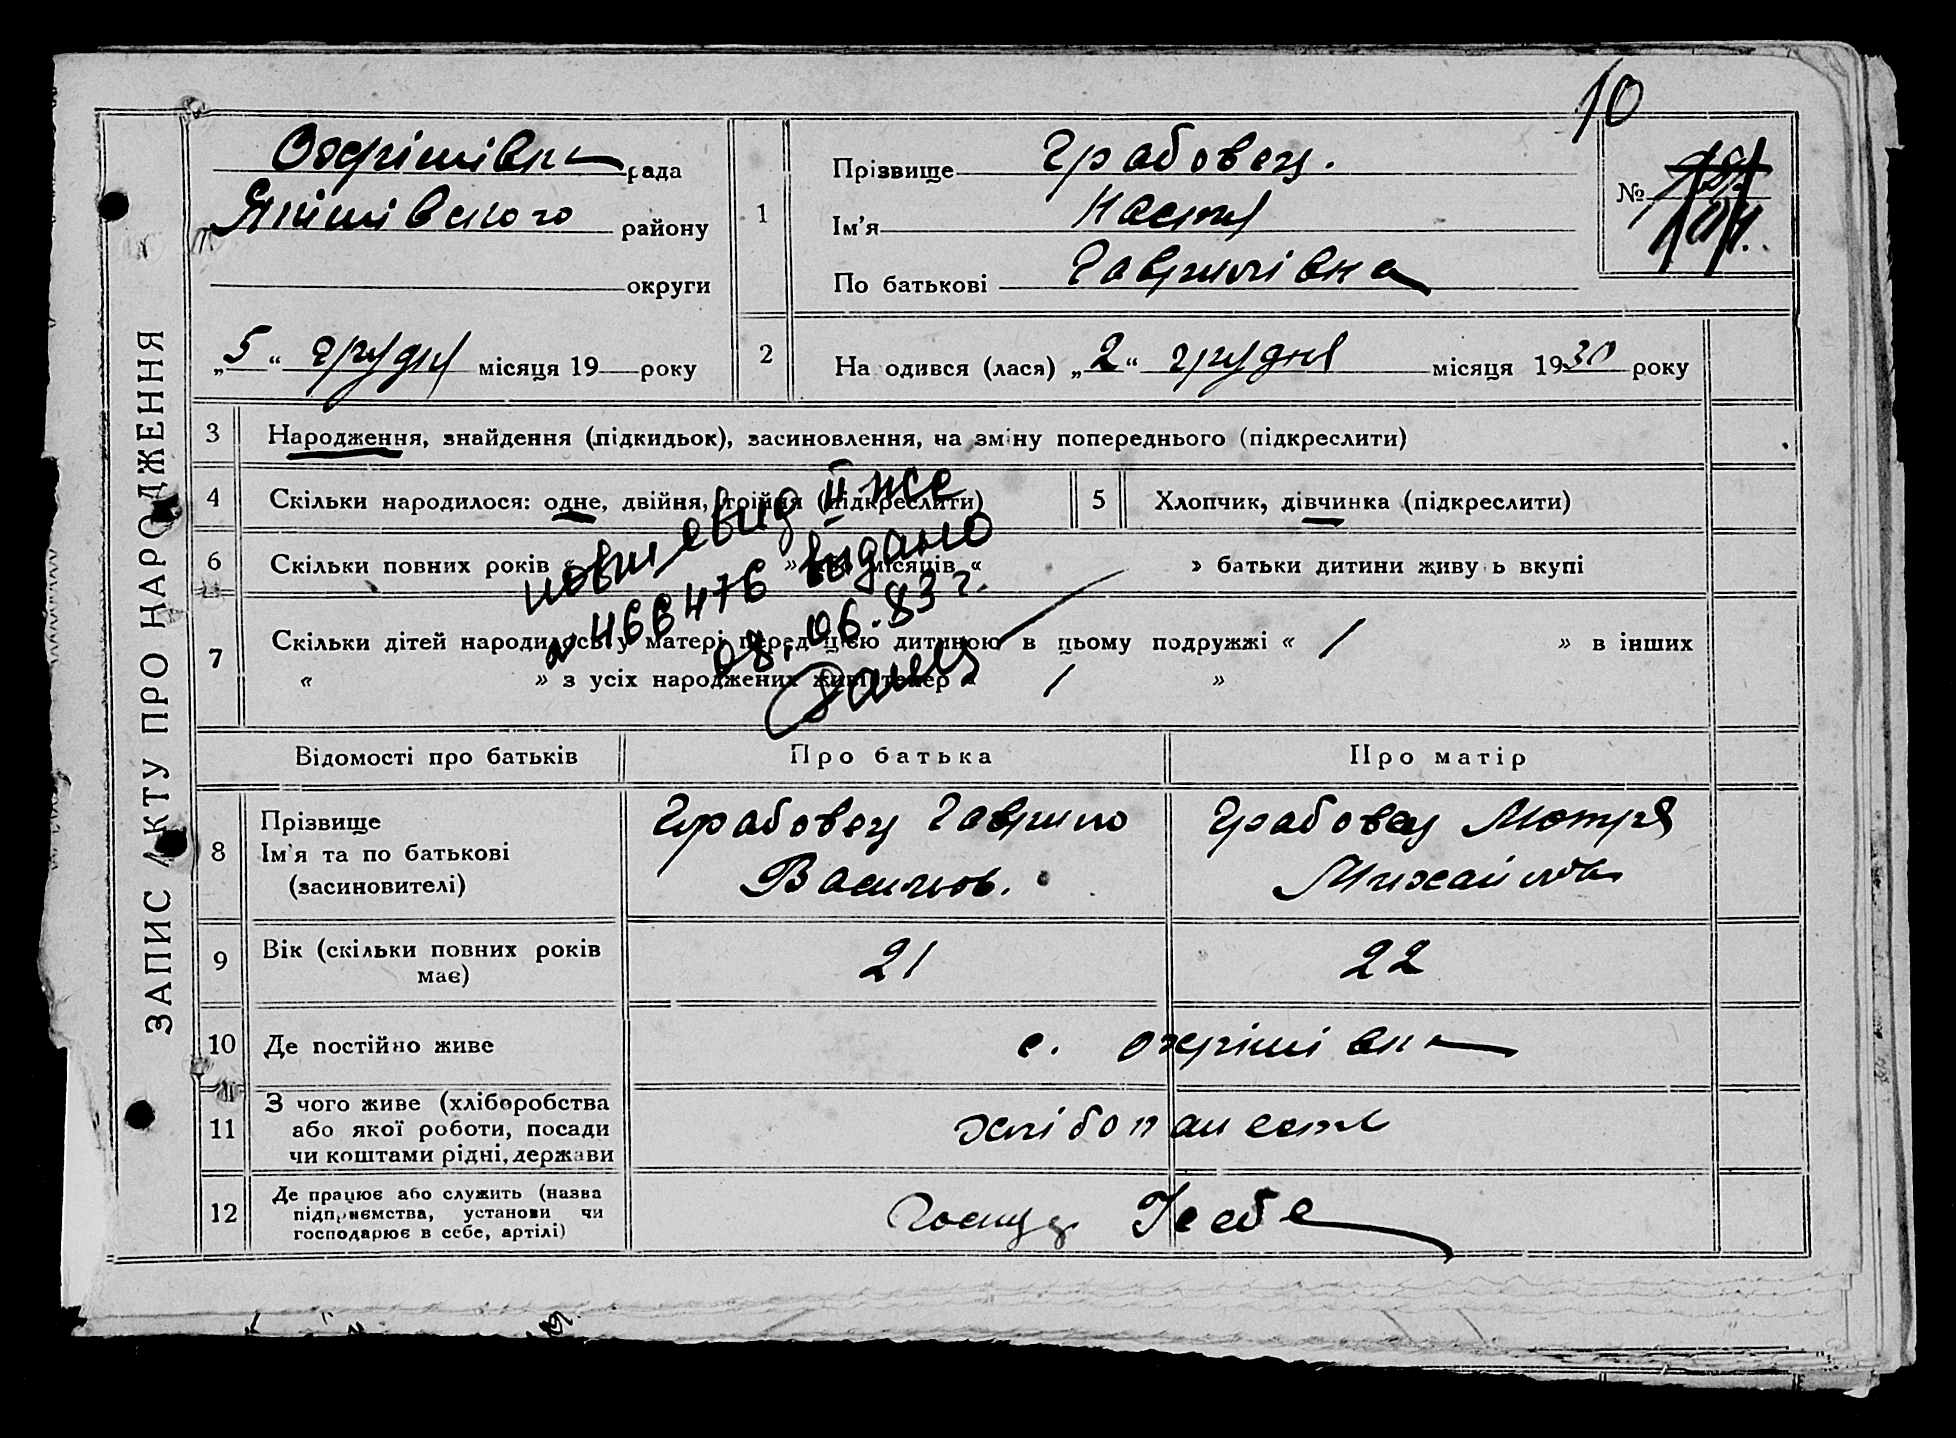 10
Охрімівка рада
району
округи
„5“ грудня місяця 19 року
1
Прізвище Грабовец.
Ім'я Настя
По батькові Гаврилівна
№
2
На одився (лася) „2“ грудня місяця 1930 року
ЗАПИС АКТУ ПРО НАРОДЖЕННЯ
3 Народження, знайдення (підкидьок), засиновлення, на зміну попереднього (підкреслити)
4 Скільки народилося: одне, двійня, трійня (підкреслити)
5 Хлопчик, дівчинка (підкреслити)
6 Скільки повних років « » місяців « » батьки дитини живу ь вкупі
7 Скільки дітей народилось у матері перед цією дитиною в цьому подружжі « / » в інших
« » з усіх народжених живі тепер « / »
II ЖС
466476 видано
08.06.83 г.
Відомості про батьків
Про батька
Про матір
8 Прізвище
Ім'я та по батькові
(засиновителі)
Грабовец Гаврило
Васильов.
Грабовец Мотря
Михайлівна
9 Вік (скільки повних років
має)
21
22
10 Де постійно живе
с. Охрімівка
11 З чого живе (хліборобства
або якої роботи, посади
чи коштами рідні, держави
хлібопашеств
12 Де працює або служить (назва
підприємства, установи чи
господарює в себе, артілі)
Господ. У себе